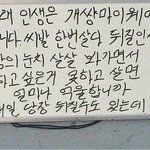 래 인생은 개쌍마이웨이
니다. 씨발 한번살다 뒤질인생
남의 눈치 살살 봐가면서
하고 싶은거 못하고 살면
얼마나 억울합니까
내일 당장 뒤질수도 있는데